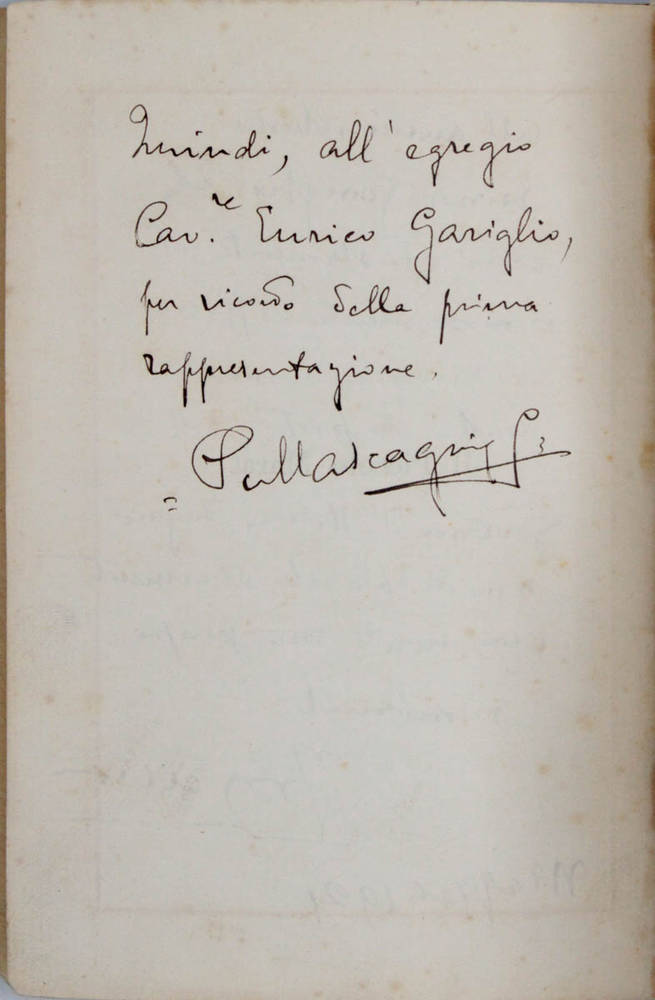 Quindi, all'egregio
Cav.re Enrico Gariglio,
per ricordo della prima
rappresentazione.
PMascagni
=